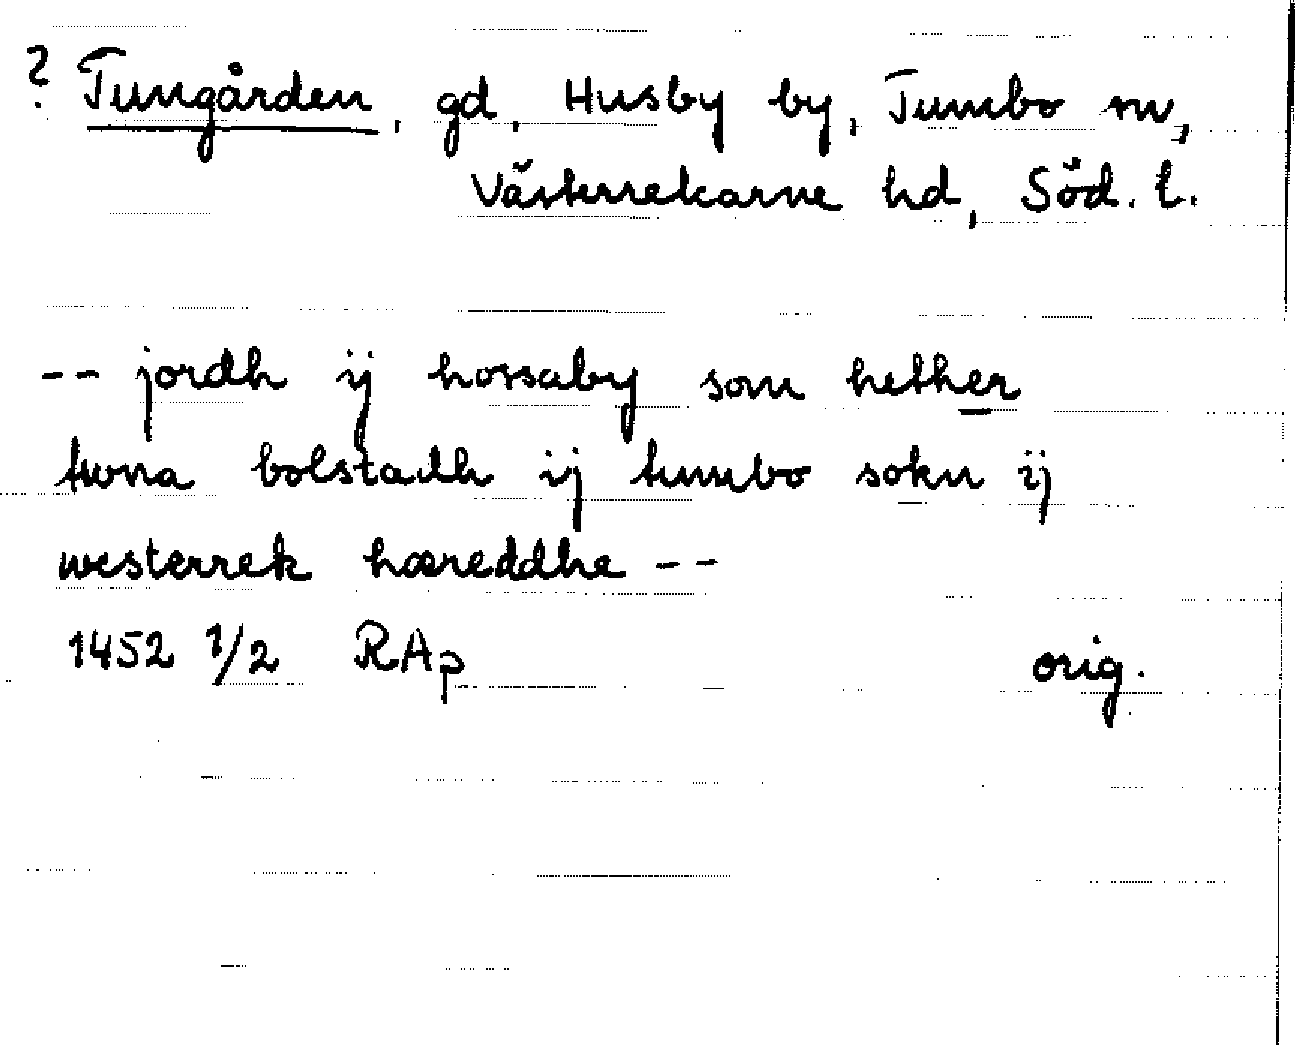 ? Tungården, gd, Husby by, Tumbo sn,
Västerrekarne hd, Söd. l.
-- jordh ij hossaby som hether
twna bolstadh ij tumbo sokn ij
westerrek hæreddhe --
1452 1/2 RAp orig.